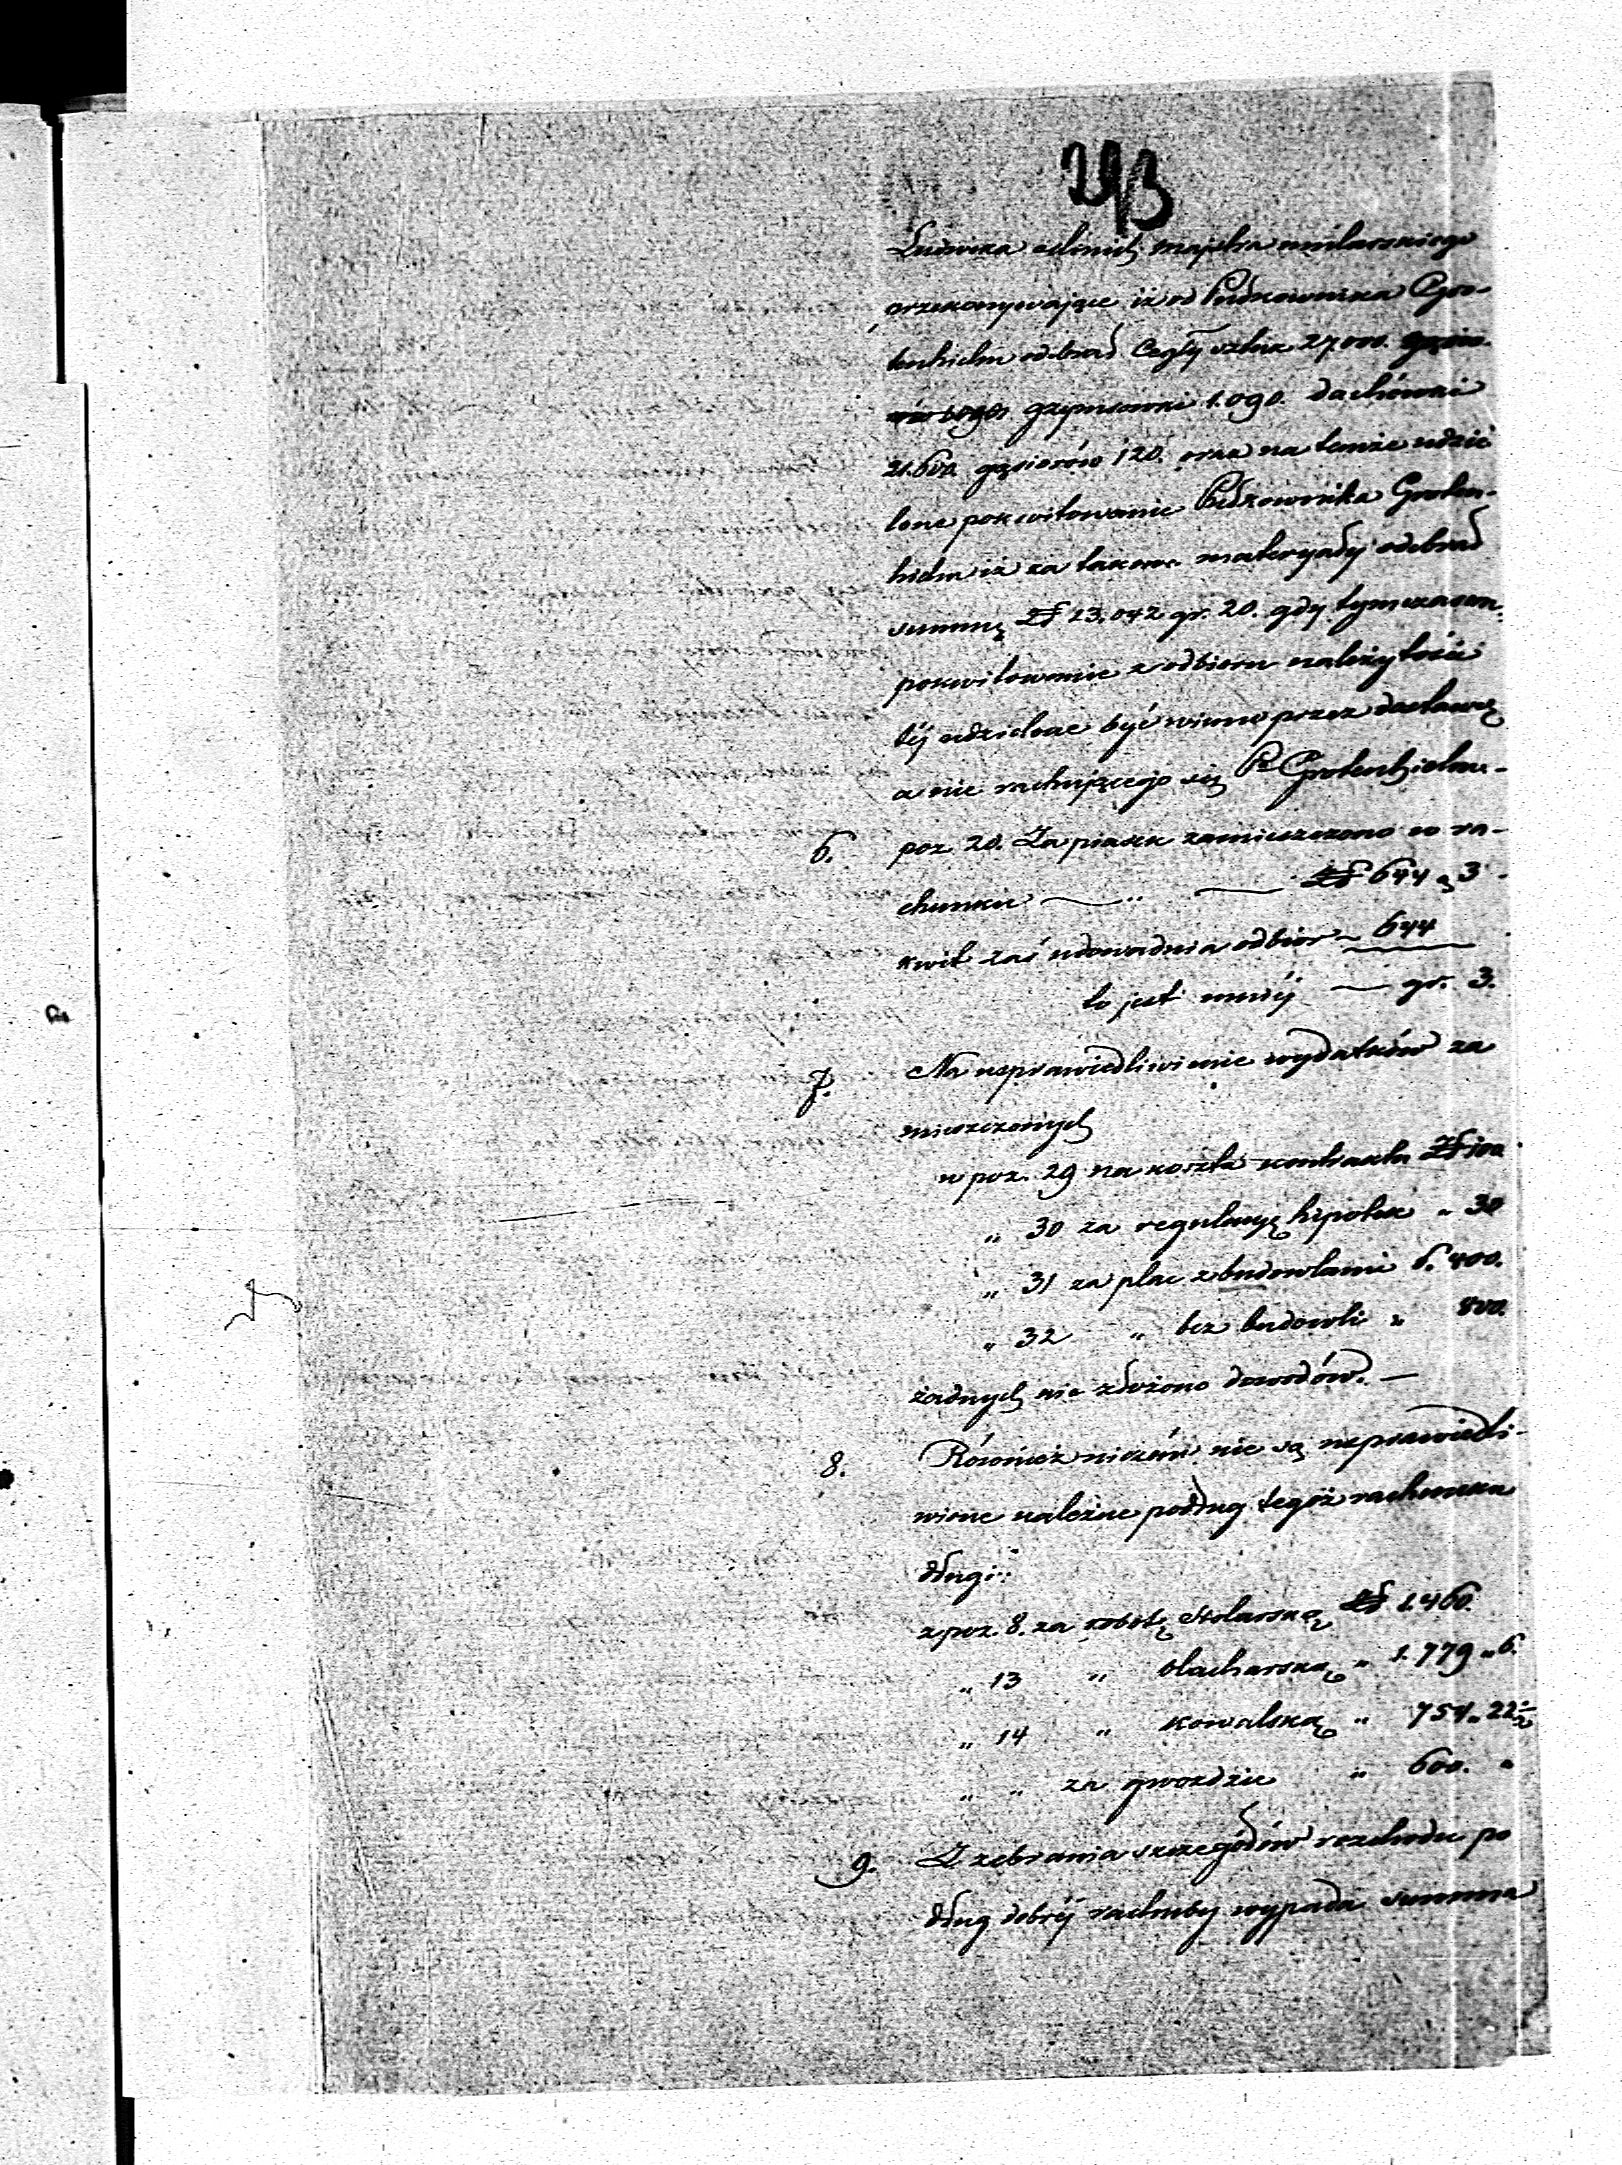 293
Ludwika majstra mularskiego
przekonywające iż od Pułkownika Gro-
tenhielm odebrał Cegły sztuk 27,000.
gzymsowki 1.090. dachówki
21.600. gąsiorów 120. oraz na temże udzie
lone pokwitowanie Pułkownika Groten-
hielm iż za takowe materyały odebrał
summę Zł 13,042 gr. 20. gdy tymczasem
pokwitowanie z odbioru należytości
téj udzielone być winno przez dostawcę
a nie rachującego się Pa Grotenhielma-
6. poz 20. Za piasek zamieszczono w ra-
chunku — " — Zł 644 " 3 -
kwit zaś udowadnia odbiór ~ 644
to jest mniéj — gr. 3.
7. Na usprawiedliwienie wydatków za
mieszczonych
w poz. 29 na koszta kontraktu Zł 100
" 30 za regulacyę hipotek " 30
" 31 za plac z budowlami 6.400.
" 32 " bez budowli " 800.
żadnych nie złożono dowodów. —
8. Również niczém nie są usprawiedli-
wione należne podług tegoż rachunku
długi:
z poz. 8. za robotę Stolarską Zł 1.460.
" 13 " blacharską " 1.779 " 6.
" 14 " kowalską " 754 " 22½
" " za gwoździe " 600. "
9. Z zebrania szczegółów rozchodu po
dług dobréj rachuby wypada Summa